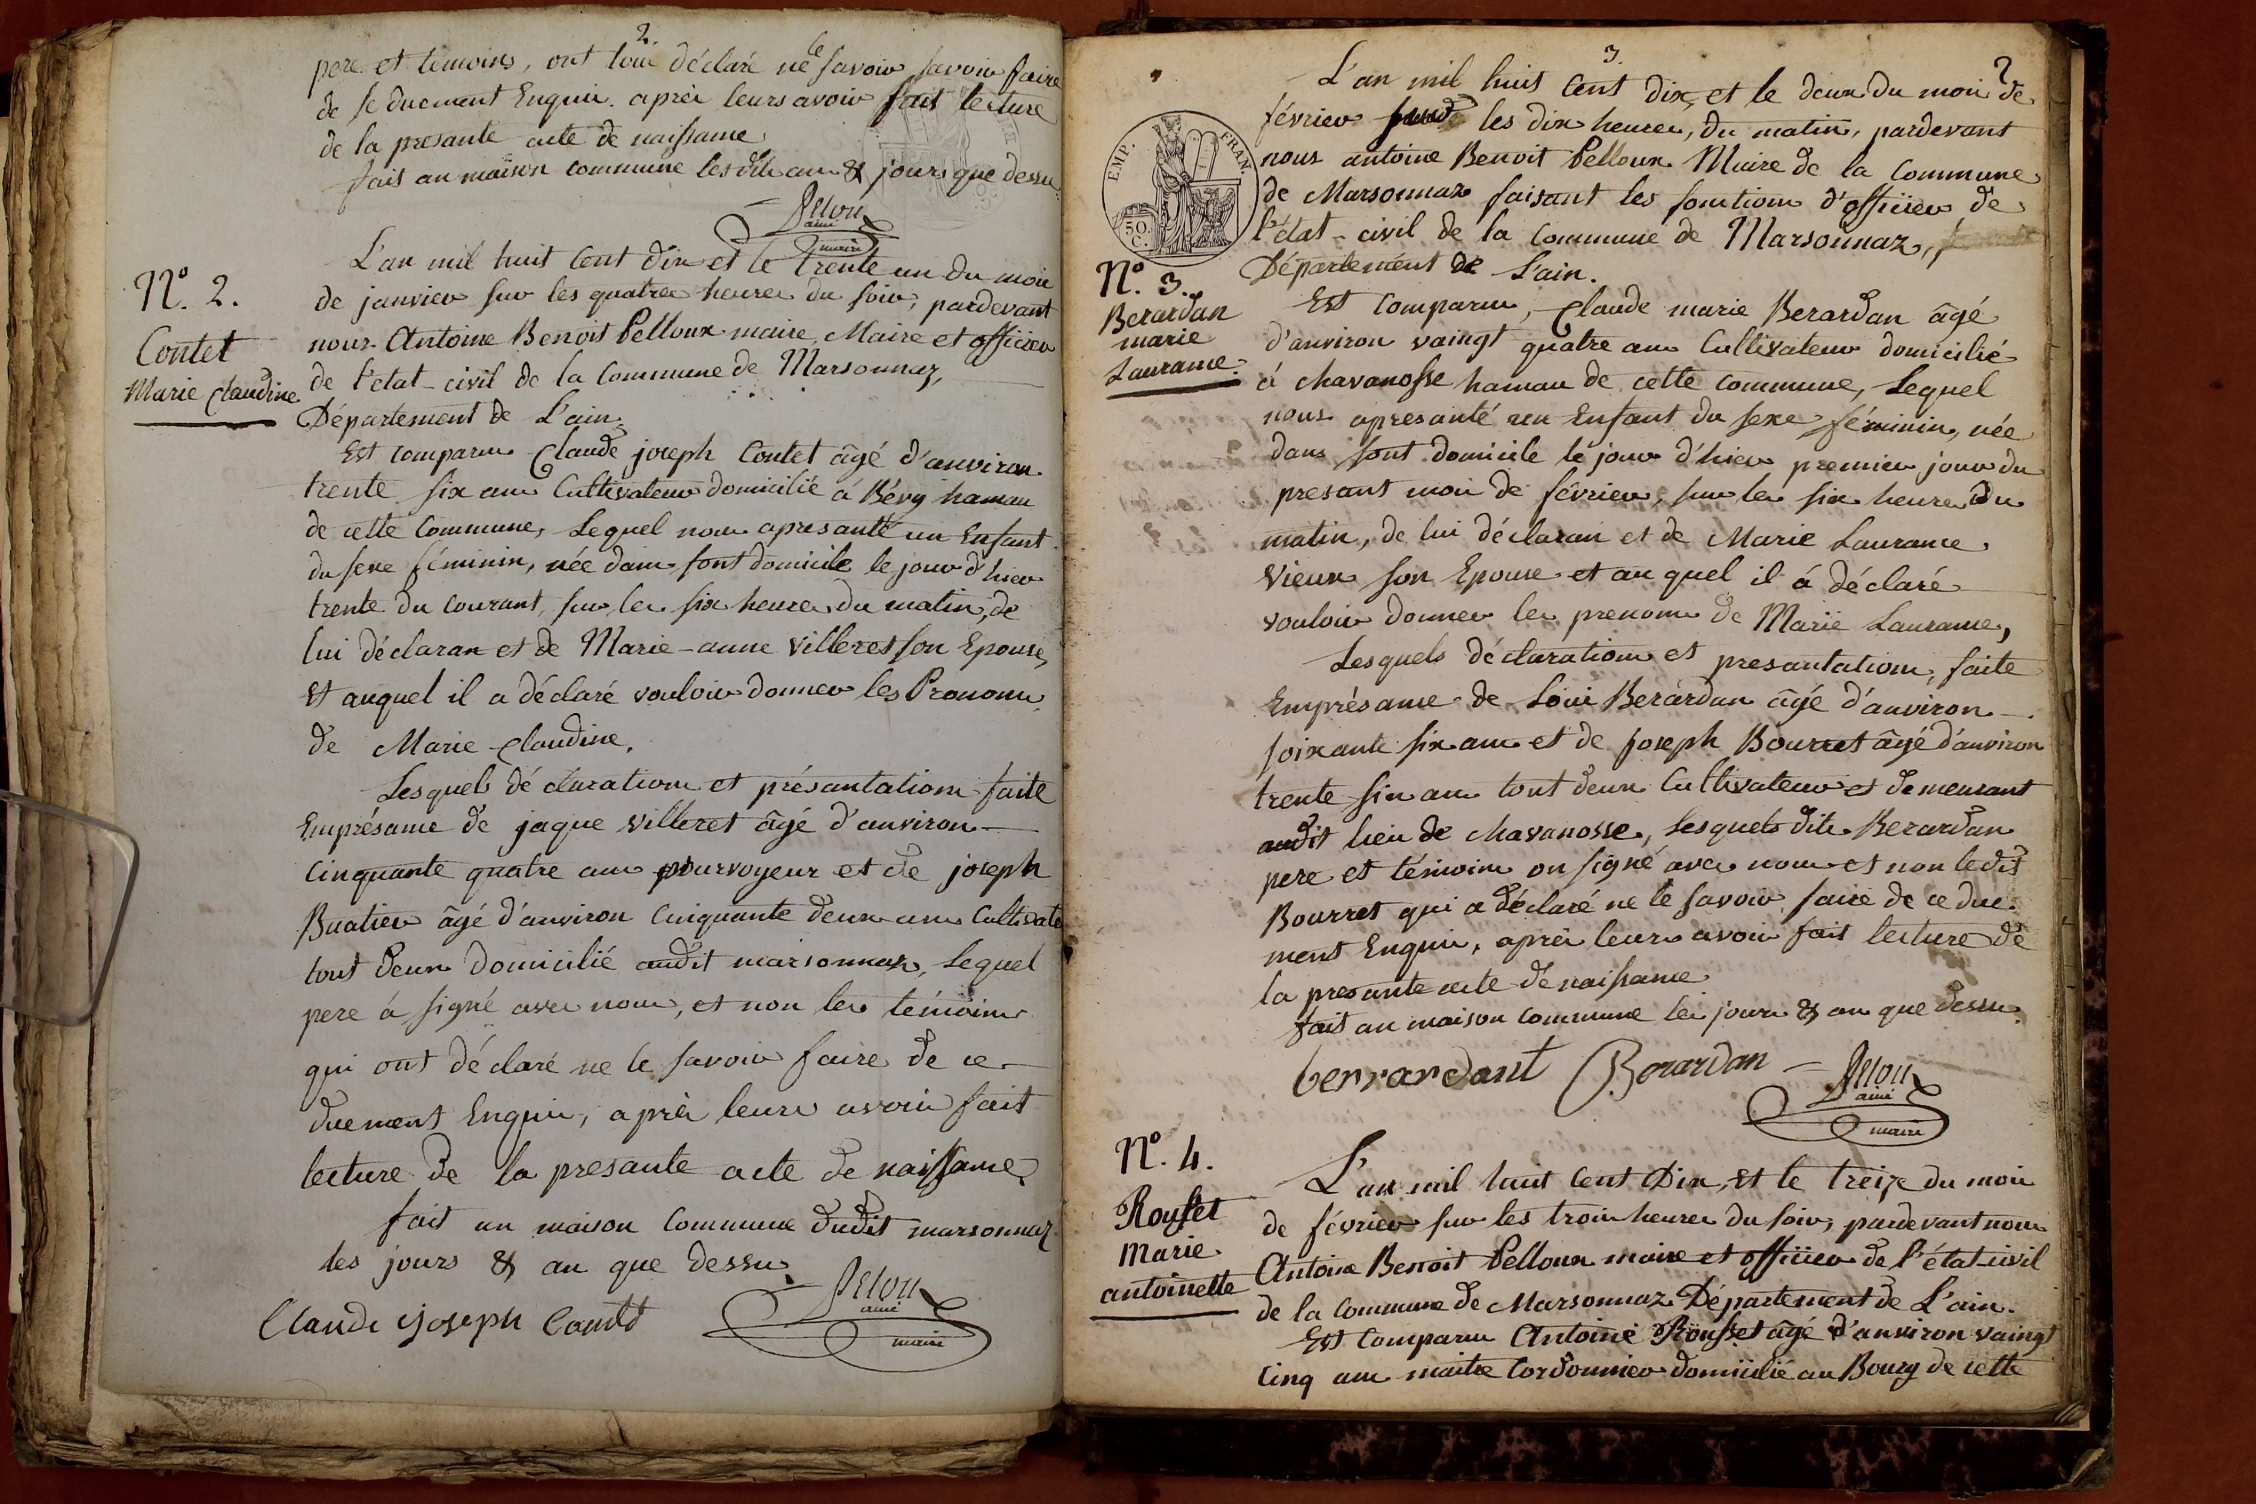 2.
pere et temoins, ont tous déclaré ne le savoir savoir faire
de se duement Enquir. aprèr leurs avoir fait lecture
de la presante acte de naissance
fais an maison commune lesdits an & jours que dessu
Pelou
ainé
maire
N.° 2.
Contet
Marie Claudine
L'an mil huit Cent dix et le trente un du mois
de janvier sur les quatre heures du soir, pardevant
nous Antoine Benoit Pelloux maire, Maire et officier
de l'état-civil de la Commune de Marsonnaz,
Département de L'ain.
Est comparu Claude joseph Contet âgé d'anviron
trente six ans Cultivateur domicilié á Bévy hamau
de cette Commune, Lequel nous apresanté un Enfant
du sexe féminin, née dans sont domicile le jour d'hier
trente du courant, sur les six heures du matin, de
lui déclaran et de Marie-anne Villeret son Epouse,
Et auquel il a déclaré vouloir donner les Prénoms
de Marie-Claudine.
Lesquels déclarations et présantations faite
Emprésance de jaque Villeret âgé d'anviron
Cinquante quatre ans pourvoyeur et de joseph
Buatier âgé d'anviron Cinquante deux ans Cultivate
tout deux Domicilié audit marsonnaz, Lequel
pere á signé avec nous, et non les témoins
qui ont déclaré ne le savoir faire de ce
duement Enquir, aprèr leurs avoir fait
lecture de la presante acte de naissance
fait an maison Commune dudit marsonnaz
les jours & an que dessu.
Claude Joseph Contet
Pelou
ainé
maire
3.
2
EMP. FRAN.
50.
C.
L'an mil huit Cent dix, et le deux du mois de
février sur les dix heures, du matin, pardevant
nous antoine Benoit Pelloux Maire de la Commune
de Marsonnaz faisant les fonctions d'officier de
l'état-civil de la Commune de Marsonnaz,
Département de L'ain.
N.° 3.
Berardan
marie
Laurance.
Est Comparu, Claude marie Berardan âgé
d'anviron vaingt quatre ans Cultivateur domicilié
á Chavanosse hamau de cette commune, Lequel
nous apresanté un Enfant du sexe féminin, née
dans sont domicile le jour d'hier premier jour du
presant mois de février, sur les six heures du
matin, de lui déclaran et de Marie Laurance
Vieux son Epouse et au quel il á déclaré
vouloir donner les prenoms de Marie Laurance,
Lesquels déclarations et presantations, faite
Emprésance de Loüi Berardan âgé d'anviron
soixante six ans et de joseph Bourret âgé d'anviron
trente six ans tout deux Cultivateur et demeurant
audit lieu de chavanosse, Lesquels dits Berardan
pere et témoins on signé avec nous et non ledit
Bourret qui a déclaré ne le savoir faire de ce due
ment Enquir, aprèr leurs avoir fait lecture de
la presante acte de naissance
fait an maison commune les jours & an que dessu.
berrardant Berardan
Pelou
ainé
maire
N.° 4.
Rousset
Marie
antoinette
L'an mil huit Cent Dix, et le treize du mois
de février sur les trois heures du soir, pardevant nous
Antoine Benoit Pelloux maire et officier de l'état-civil
de la Commune de Marsonnaz Département de L'ain.
Est Comparu Antoine Rousset âgé d'anviron vaingt
Cinq ans maitre Cordonnier domicilié au Bourg de cette